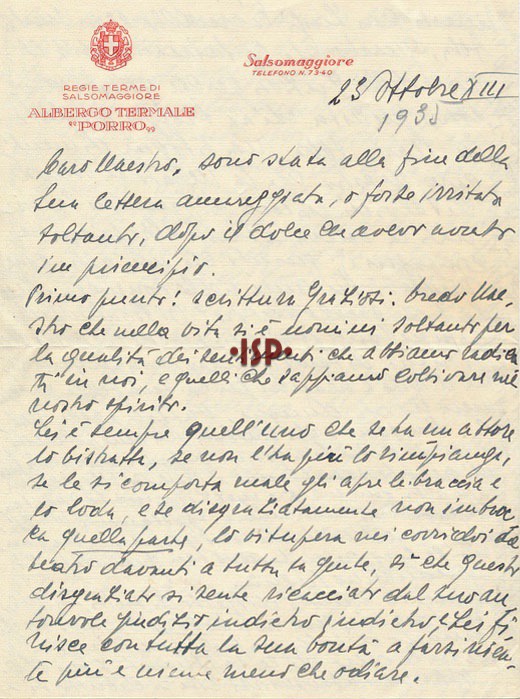 REGIE TERME DI
SALSOMAGGIORE
ALBERGO TERMALE
"PORRO"
Salsomaggiore
TELEFONO N. 73-40
23 Ottobre XIII
1935
Caro Maestro, sono stata alla fine della
Sua lettera amareggiata, o forse irritata
soltanto, dopo il dolce che avevo avuto
in principio.
Primo punto! scrittura Graziosi. Credo Mae
stro che nella vita si è uomini soltanto per
la qualità dei sentimenti che abbiamo radica
ti in noi, e quelli che sappiamo coltivare nel
nostro spirito.
Lei è sempre quell'uno che se ha un attore
lo bistratta, se non l'ha più lo rimpiange,
se le si comporta male gli apre le braccia e
lo loda, e se disgraziatamente non imbroc
ca quella parte, lo vitupera nei corridoi da
teatro davanti a tutta la gente, sì che questo
disgraziato si sente ricacciato dal suo au
torevole giudizio indietro indietro, e Lei fi
nisce con tutta la sua bontà a farsi
te più e meno che odiare.
ISP